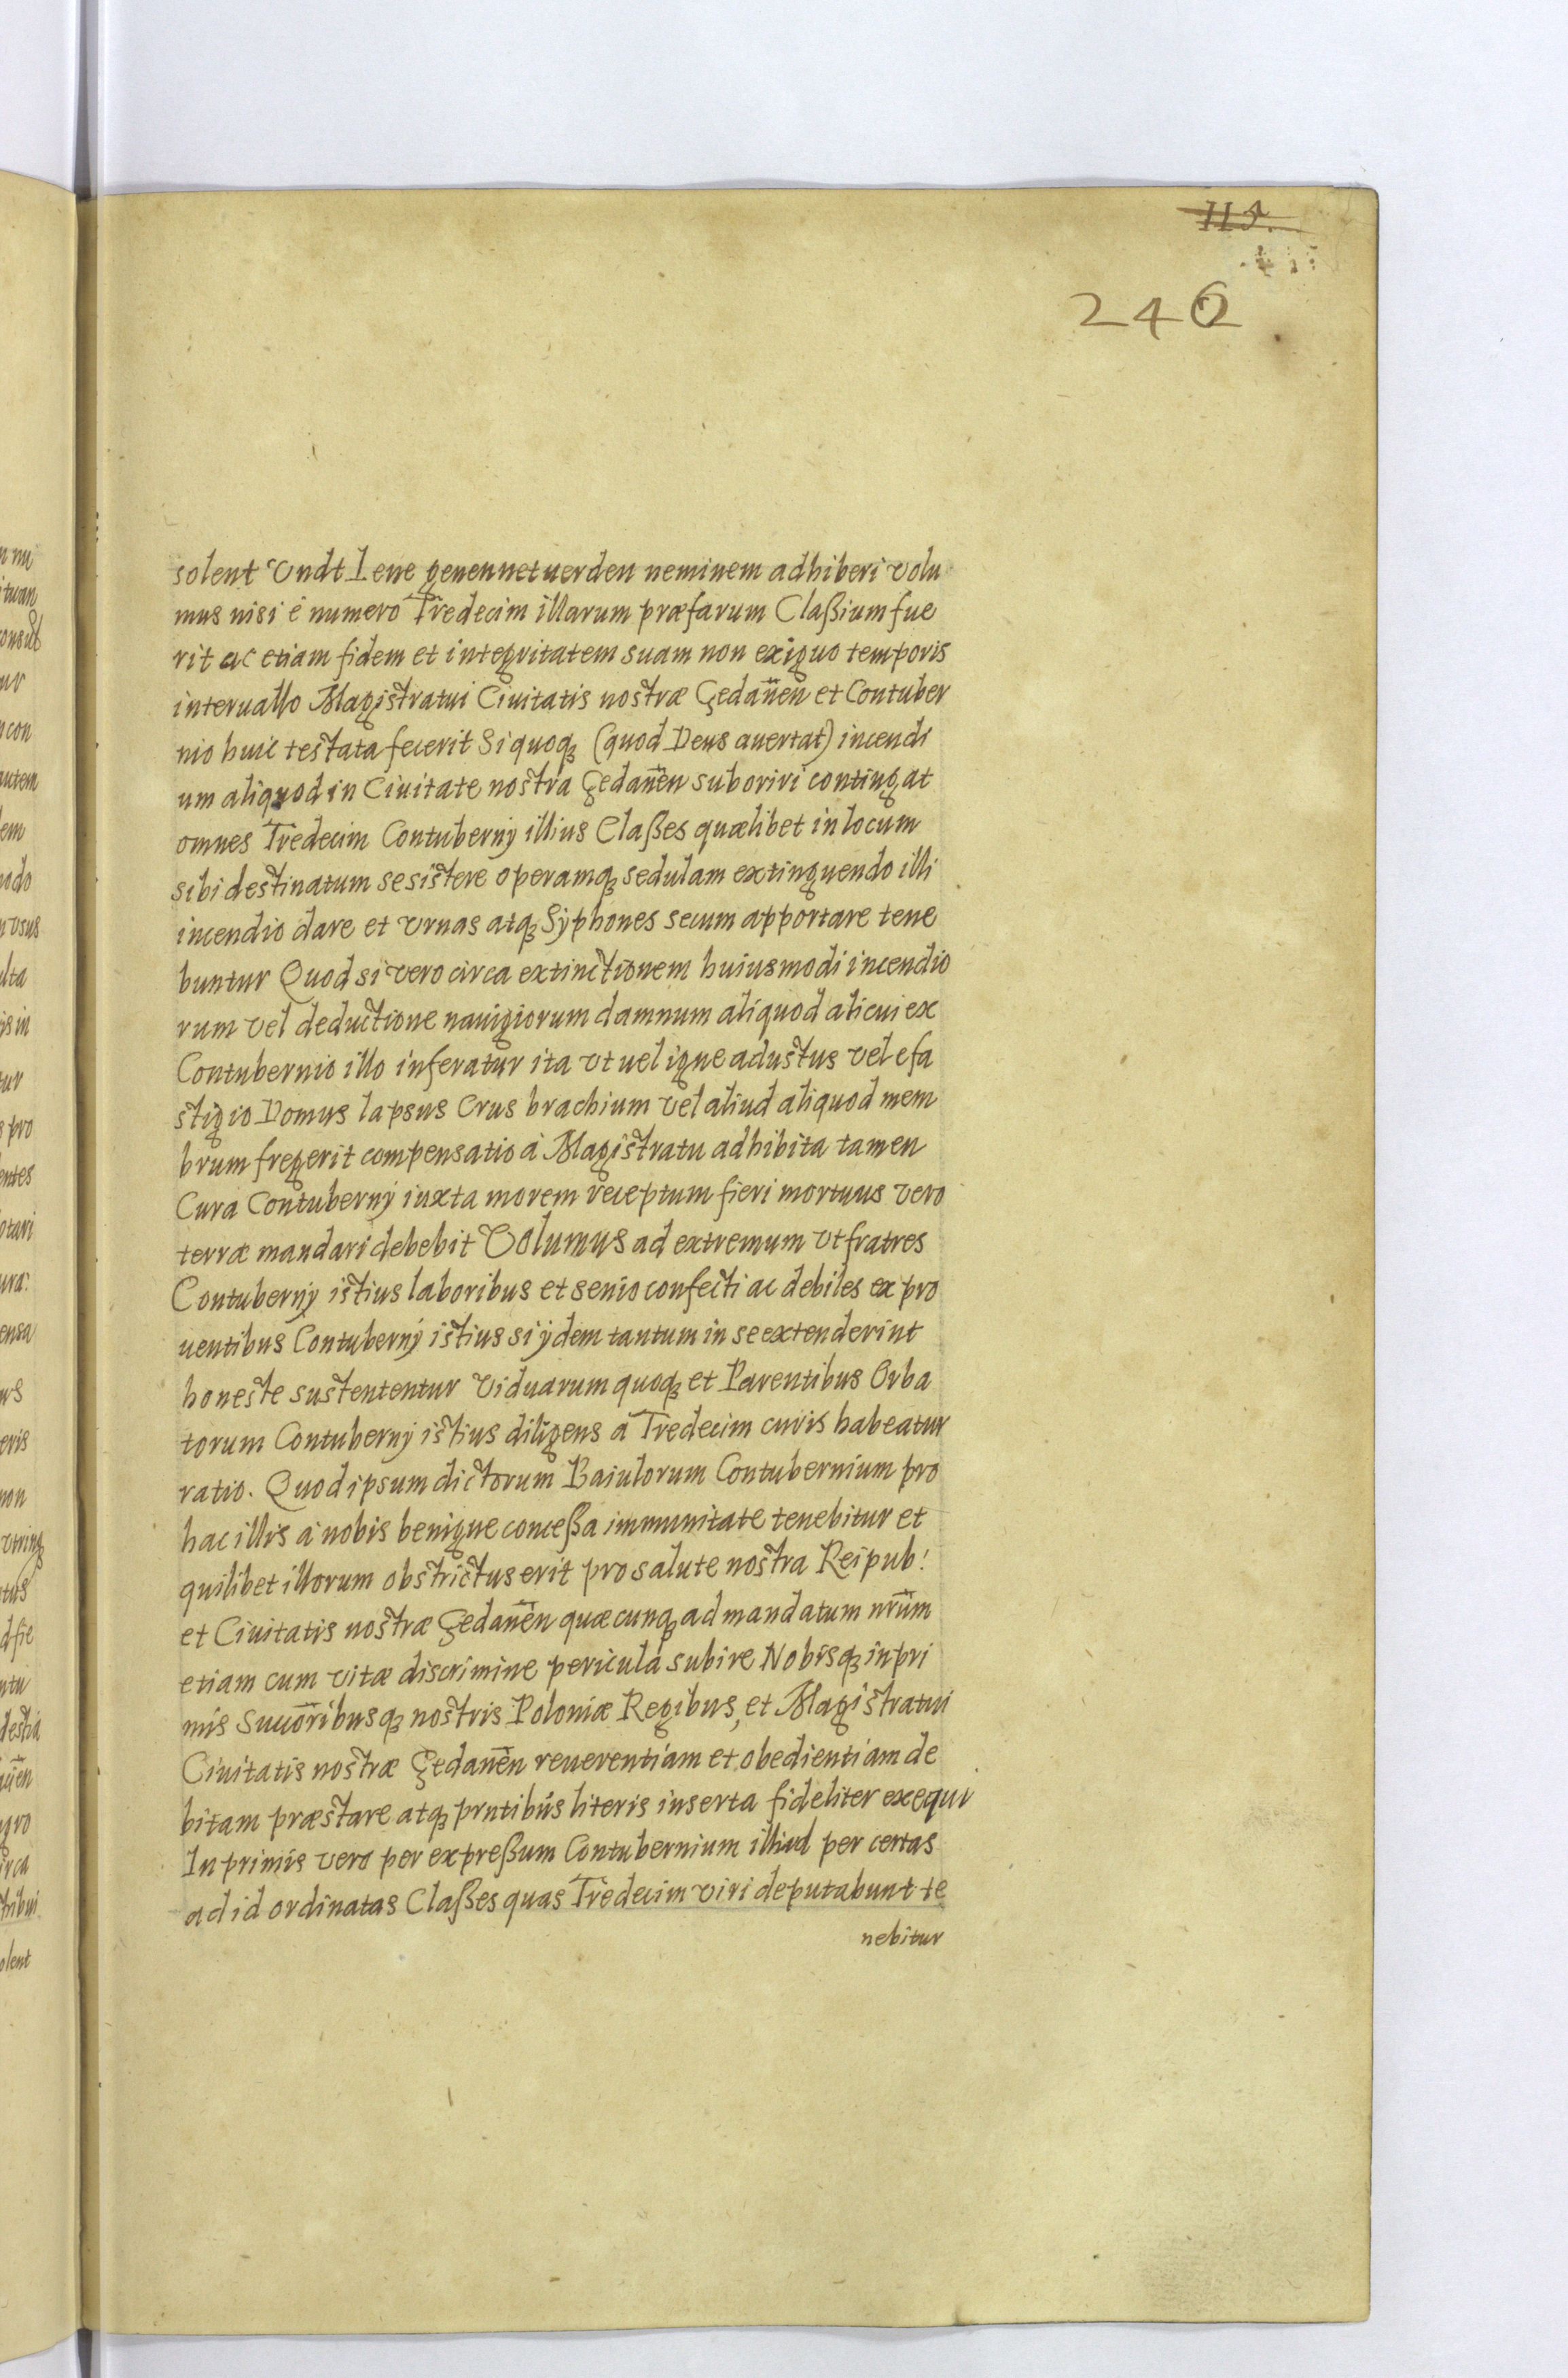 246
solent Vndt Iene genennet uerden neminem adhiberi volu
mus nisi è numero Tredecim illarum præfarum Claßium fue
rit ac etiam fidem et integritatem suam non exiguo temporis
interuallo Magistratui Ciuitatis nostræ Gedanen̄ et Contuber
nio huic testata fecerit Si quoq̨ (quod Deus auertat) incendi
um aliquod in Ciuitate nostra Gedanen̄ suboriri contingat
omnes Tredecim Contubernÿ illius Claßes quælibet in locum
sibi destinatum se sistere operamq̨ sedulam extinguendo illi
incendio dare et vrnas atq̨ Sÿphones secum apportare tene
buntur Quod si vero circa extinctionem huiusmodi incendio
rum vel deductione nauigiorum damnum aliquod alicui ex
Contubernio illo inferatur ita vt uel igne adustus vel e fa
stigio Domus lapsus Crus brachium vel aliud aliquod mem
brum fregerit compensatio à Magistratu adhibita tamen
Cura Contubernÿ iuxta morem receptum fieri mortuus vero
terræ mandari debebit Volumus ad extremum vt fratres
Contubernÿ istius laboribus et senio confecti ac debiles ex pro
uentibus Contubernÿ istius si ÿdem tantum in se extenderint
honeste sustententur Viduarum quoq̨ et Parentibus Orba
torum Contubernÿ istius diligens à Tredecim curis habeatur
ratio. Quod ipsum dictorum Baiulorum Contubernium pro
hac illis à nobis benigne conceßa immunitate tenebitur et
quilibet illorum obstrictus erit pro salute nostra Reipub:
et Ciuitatis nostræ Gedanen̄ quæcunq̨ ad mandatum nr̄um
etiam cum vitæ discrimine pericula subire Nobisq̨ inpri
mis Suuōribusq̨ nostris Poloniæ Regibus, et Magistratui
Ciuitatis nostræ Gedanen̄ reuerentiam et obedientiam de
bitam præstare atq̨ prn̄tibus literis inserta fideliter exequi
In primis vero per expreßum Contubernium illud per certas
ad id ordinatas Claßes quas Tredecim viri deputabunt te
nebitur